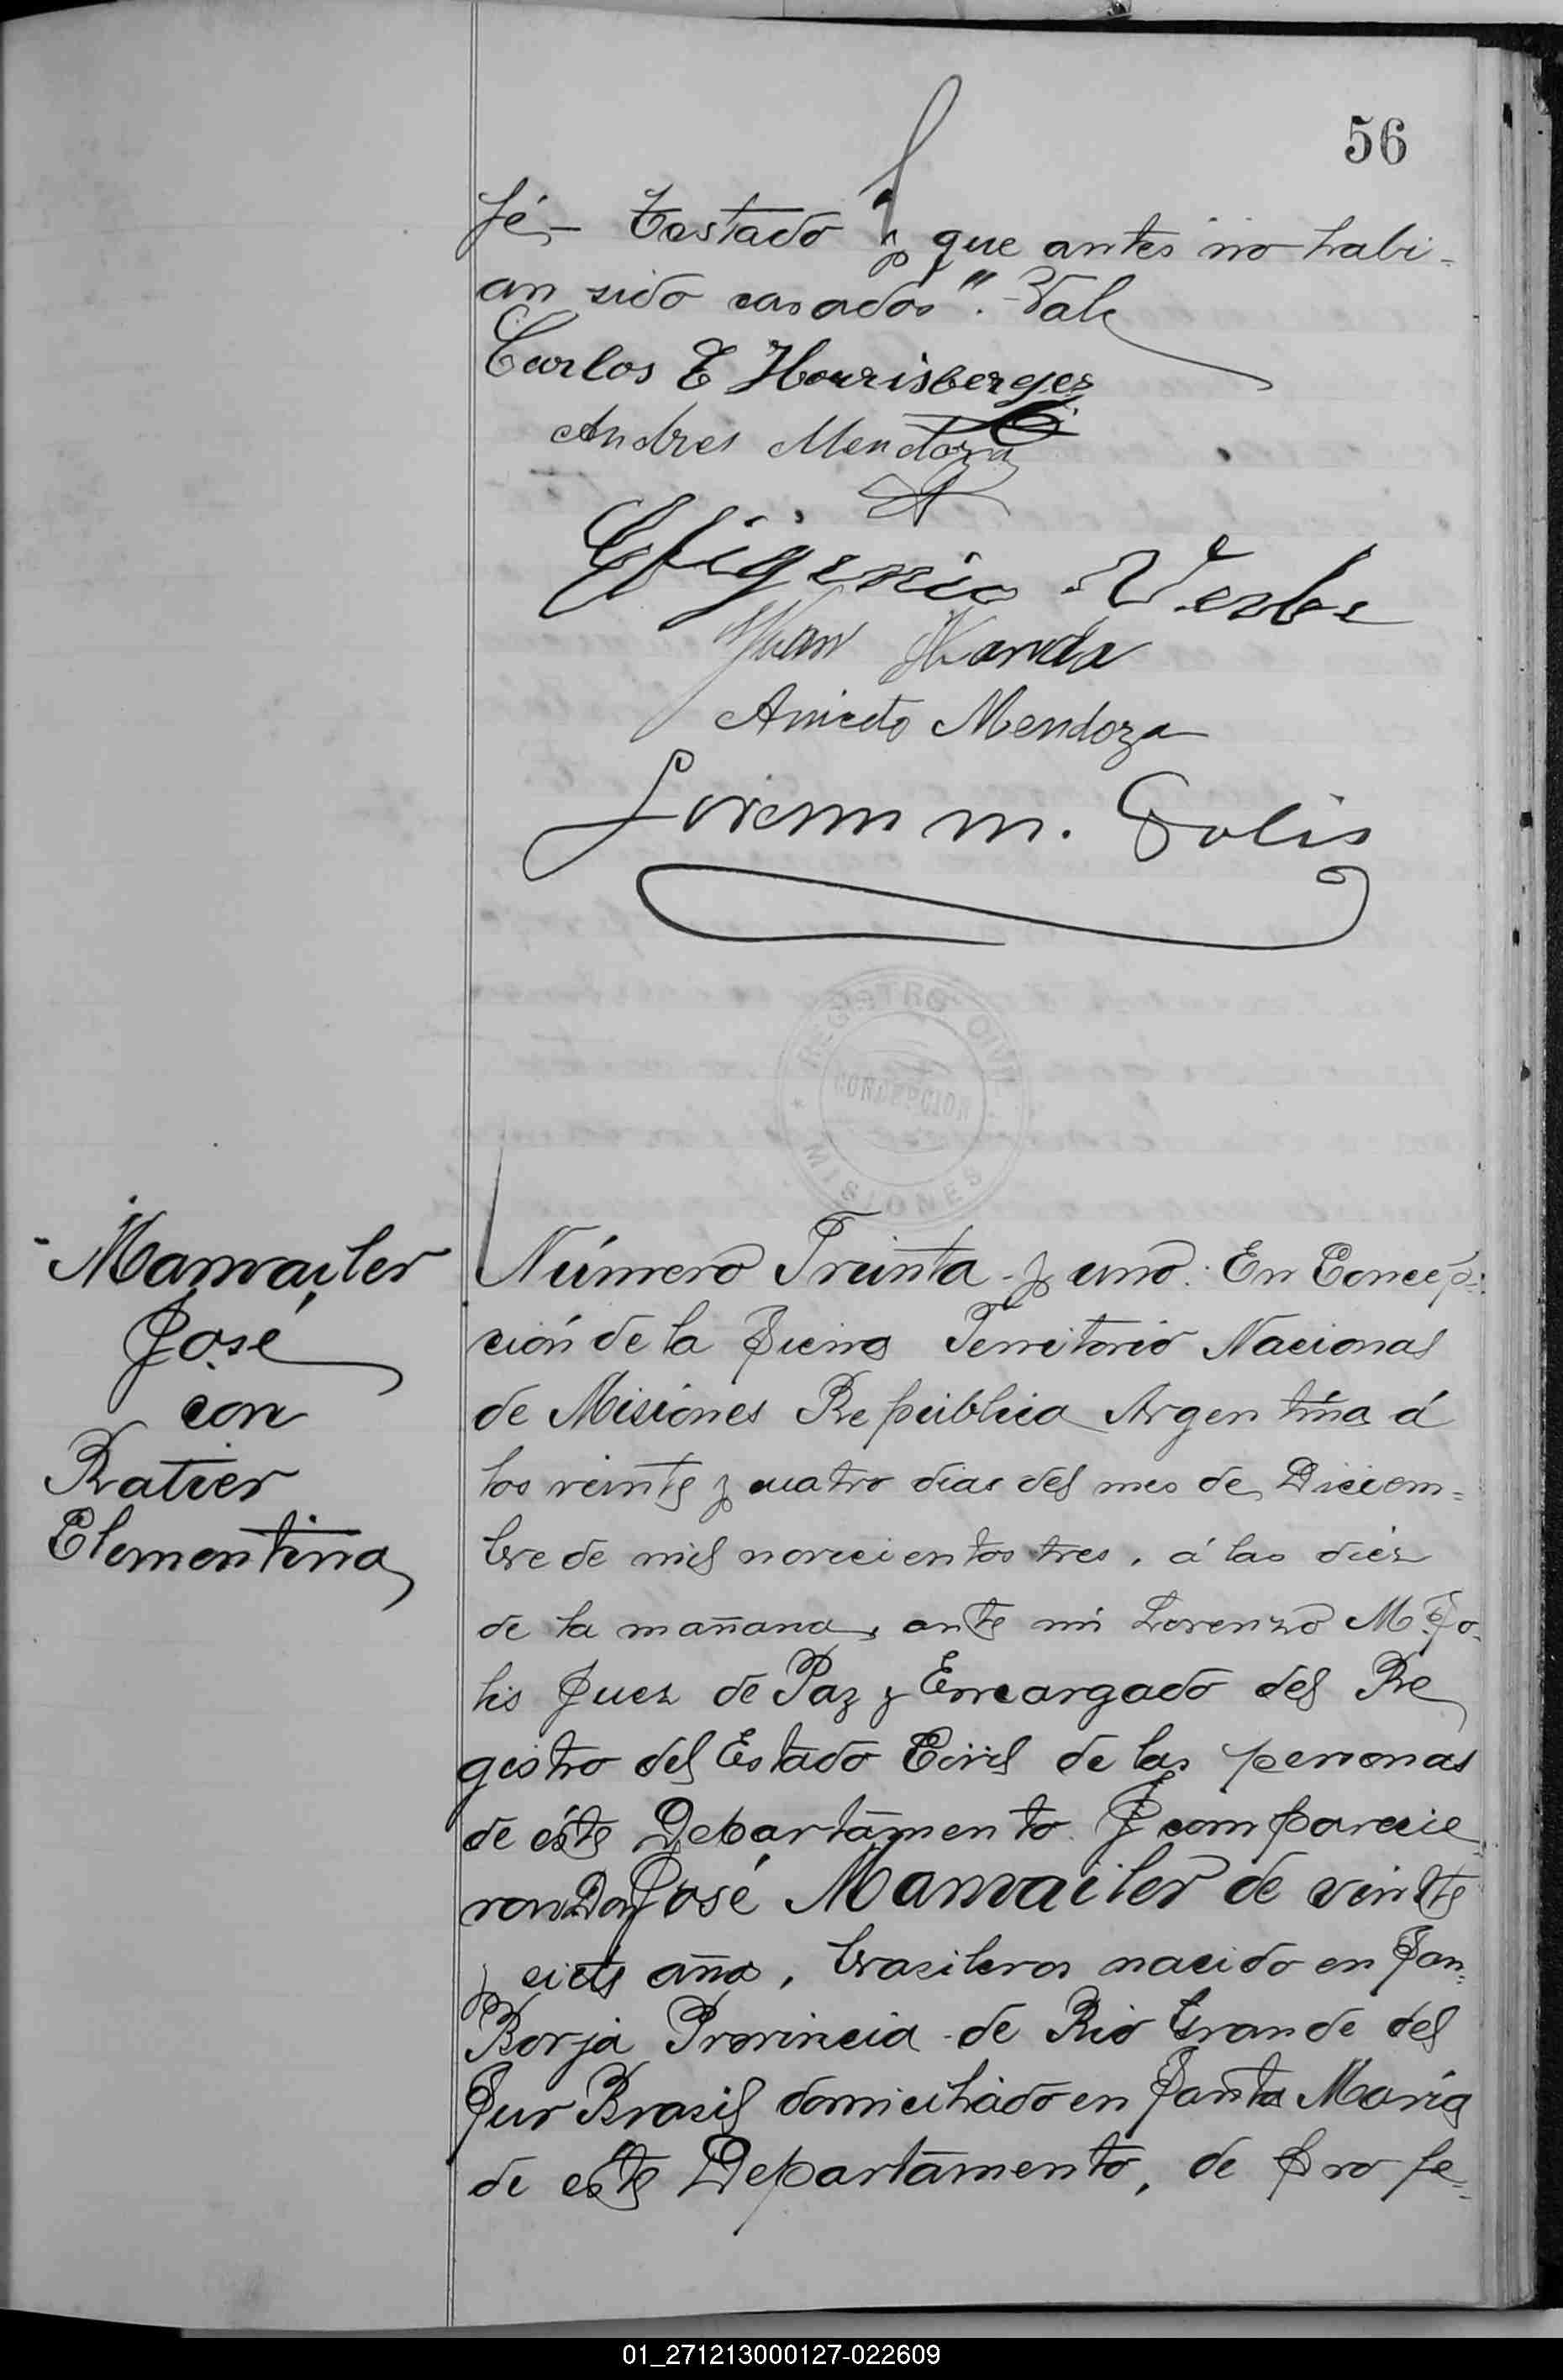 56
fé,- Testado "y que antes no habi-
an sido casados". Vale
Carlos E Hourisberger
Andres Mendoza
Efigenio Verbe
Juan
Aniceto Mendoza
Lorenzo M. Solis
REGISTRO CIVIL
CONCEPCION
* MISIONES
Manvailer
José
con
Ratier
Clementina
Número Treinta y uno. En Concep-
ción de la Sierra Territorio Nacional
de Misiones República Argentina á
los veinte y cuatro dias del mes de Diciem=
bre de mil novecientos tres, á las diez
de la mañana, ante mi Lorenzo M. So-
lis Juez de Paz y Encargado del Re
gistro del Estado Civil de las personas
de éste Departamento. Comparecie
ron Don José Manvailer de veinte
y siete años, brasilero nacido en San
Borja Provincia de Rio Grande del
Sur Brasil domiciliado en Santa Maria
de este Departamento, de profe=
01_271213000127-022609